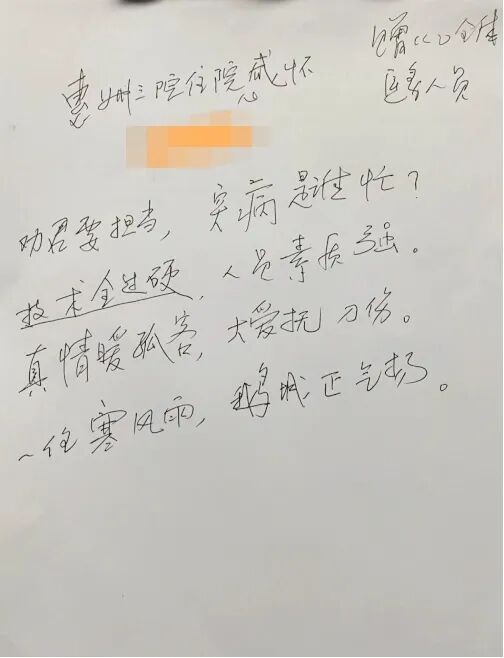 惠州三院住院感怀
赠CCU全体
医务人员
劝君要担当，突病是谁忙？
技术全过硬，人员素质强。
真情暖孤客，大爱抚刀伤。
任寒风雨，鹅城正气扬。